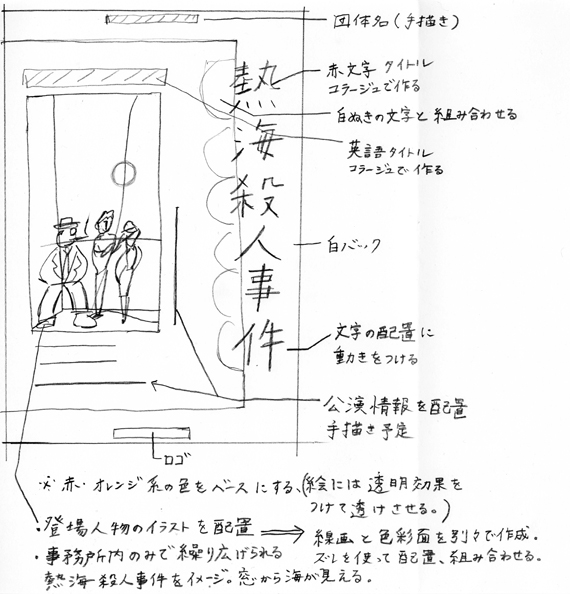 団体名(手描き)
赤文字 タイトル
コラージュで作る
白ぬきの文字と組み合わせる
英語タイトル
コラージュで作る
熱海殺人事件
白バック
文字の配置に
動きをつける
公演情報を配置
手描き予定
ロゴ
※赤・オレンジ系の色をベースにする、(絵には透明効果を
つけて透けさせる。)
・登場人物のイラストを配置 ⇒ 線画と色彩面を別々で作成。
ズレを使って配置、組み合わせる。
・事務所内のみで繰り広げられる
熱海殺人事件をイメージ。窓から海が見える。